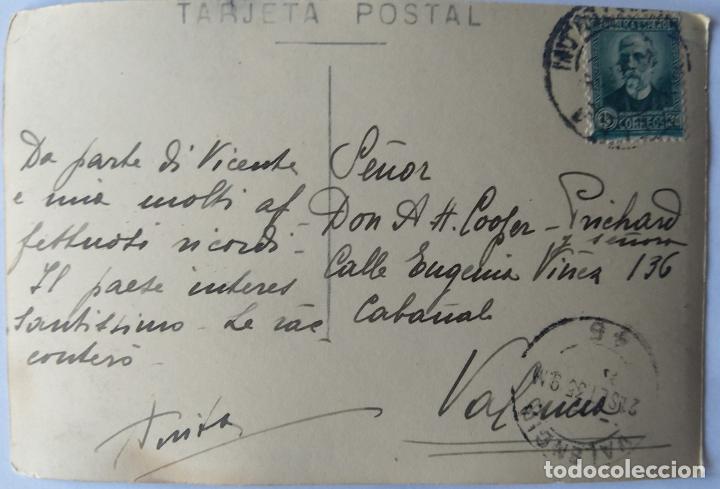 TARJETA POSTAL
Da parte di Vicente
e mia molti af
fettuosi ricordi -
Il paese interes
santissimo - Le rac
conterò -
Anita
Señor
Don A. H. Cooper - Prichard
y señora
Calle Eugenia Viñea 136
Cabañal
Valencia
CORREOS
VALENCIA